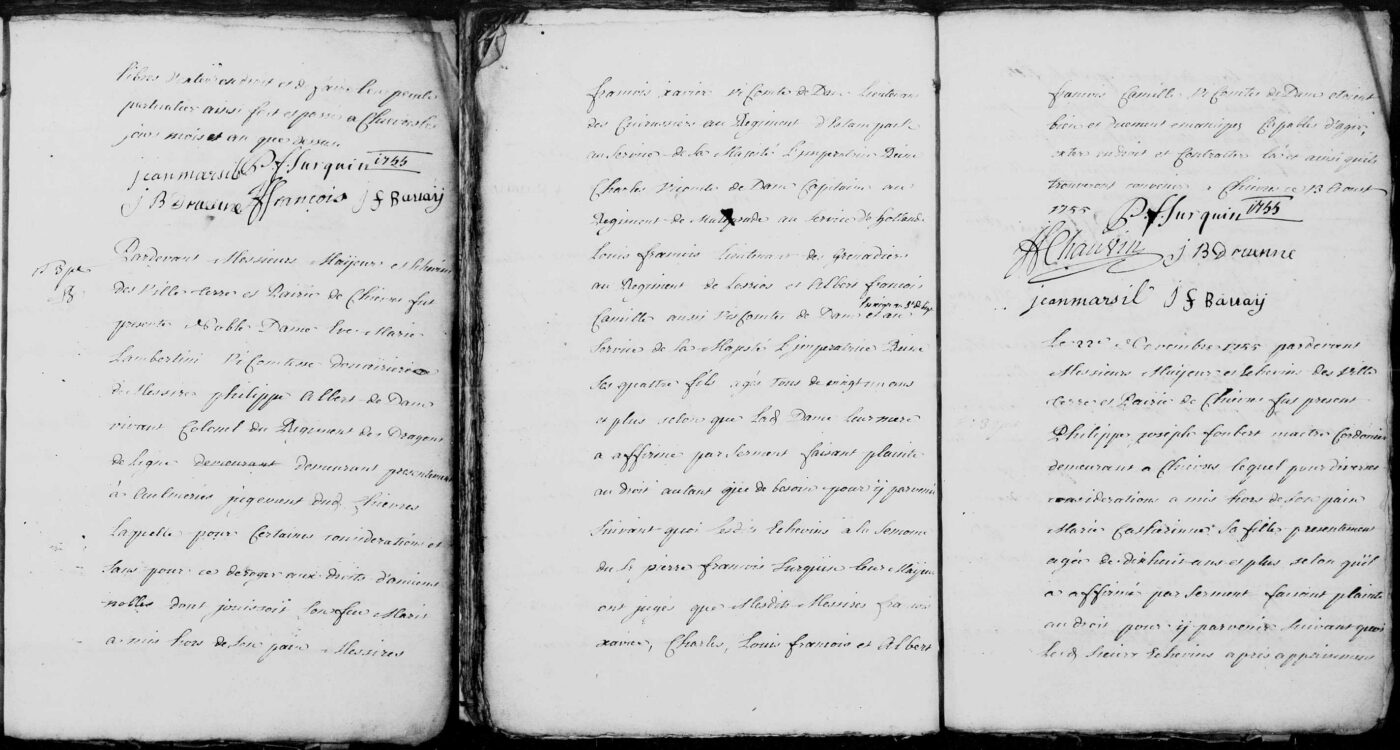 libres d'ester en droit et de faire leur pecule
particulier ainsi fait et passé a Chievres les
jour mois et an que dessus
P. f. Surquin 1755
jean marsil
J B Drousne f françois J f Barraij
Pardevant Messieurs Maijeur et Echevins
des Ville terre et Pairie de Chievre fut
presente Noble Dame Eve Marie
Lambertini Vicomtesse douairiere
de Messire philippe Albert de Dam
vivant Colonel du Regiment des Dragons
de Ligne demeurant demeurant presentement
à jugement dud. Chievres
Laquelle pour Certaines considerations et
sans pour ce deroger aux droits d'anciens
nobles dont jouissoit son feu Maris
a mis hors de son pain Messires
françois xavier Vicomte de Dam Lieutenan
des Cuirassiers au Regiment d'Estampach
au service de sa Majesté L'imperatrice Reine
Charles Vicomte de Dam Capitaine au
Regiment de au Service de holland
Louis francois Lieutenant des Grenadiers
au Regiment de Losrios et Albert françois
Camille aussi Vicomte de Dam et au
Service de la Majesté L'imperatrice Reine
ses quattre fils agés Tous de vingt un ans
et plus selon que Lad. Dame Leur mere
a affirmé par serment faisant plainte
au droit autant que de besoin pour ij parvenir
suivant quoi Lesd. Echevins à la semonce
du Sr. pierre françois Surquin Leur Maijeur
ont jugés que Mesdits Messires françois
xavier, Charles, Louis francois et Albert
francois Camille Vicomtes de Dam etoient
bien et duement emancipez Capables d'agir,
ester en droit et Contracter là et ainsi qu'ils
trouveront convenir a Chievre ce 13 Aoust
1755 P. f. Surquin 1755
J B Drousne
jean marsil J f Barraij
Le 22e Novembre 1755 pardevant
Messieurs Maijeur et Echevins des Ville
terre et Pairie de Chievre fut present
Philippe joseph foubert maitre Cordonier
demeurant a Chievres lequel pour diverses
considerations a mis hors de son pain
Marie Catherinne sa fille presentement
agée de dixhuit ans et plus selon qu'il
a affirmé par serment faisant plainte
au droit pour ij parvenir suivant quoi
Lesd. sieurs Echevins après